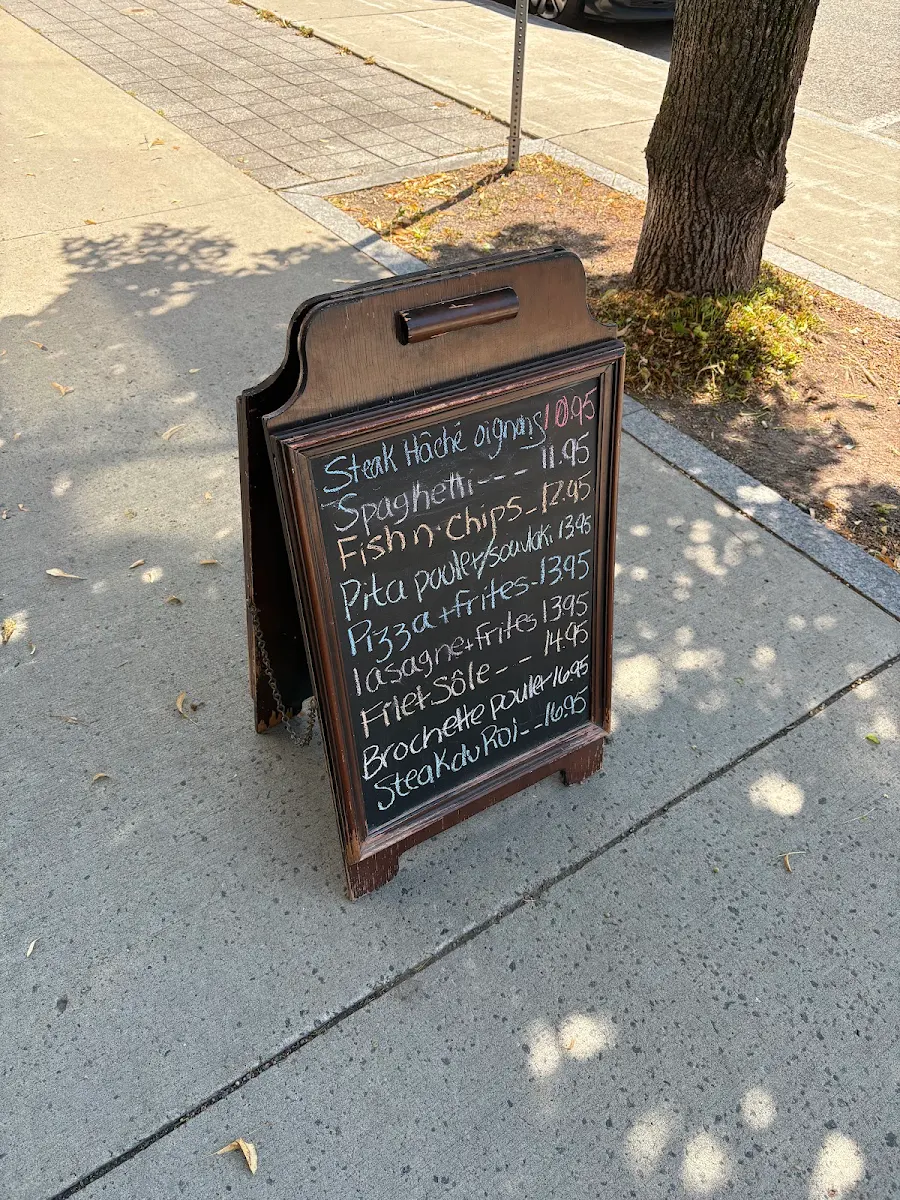 Steak Hâché oignons 10.95
Spaghetti - - - 11.95
Fish n' chips - 12.95
Pita poulet/souvlaki 13.95
Pizza + frites - 13.95
lasagne + frites 13.95
Filet Sôle - - - 14.95
Brochette poulet 16.95
Steak du Roi - - 16.95